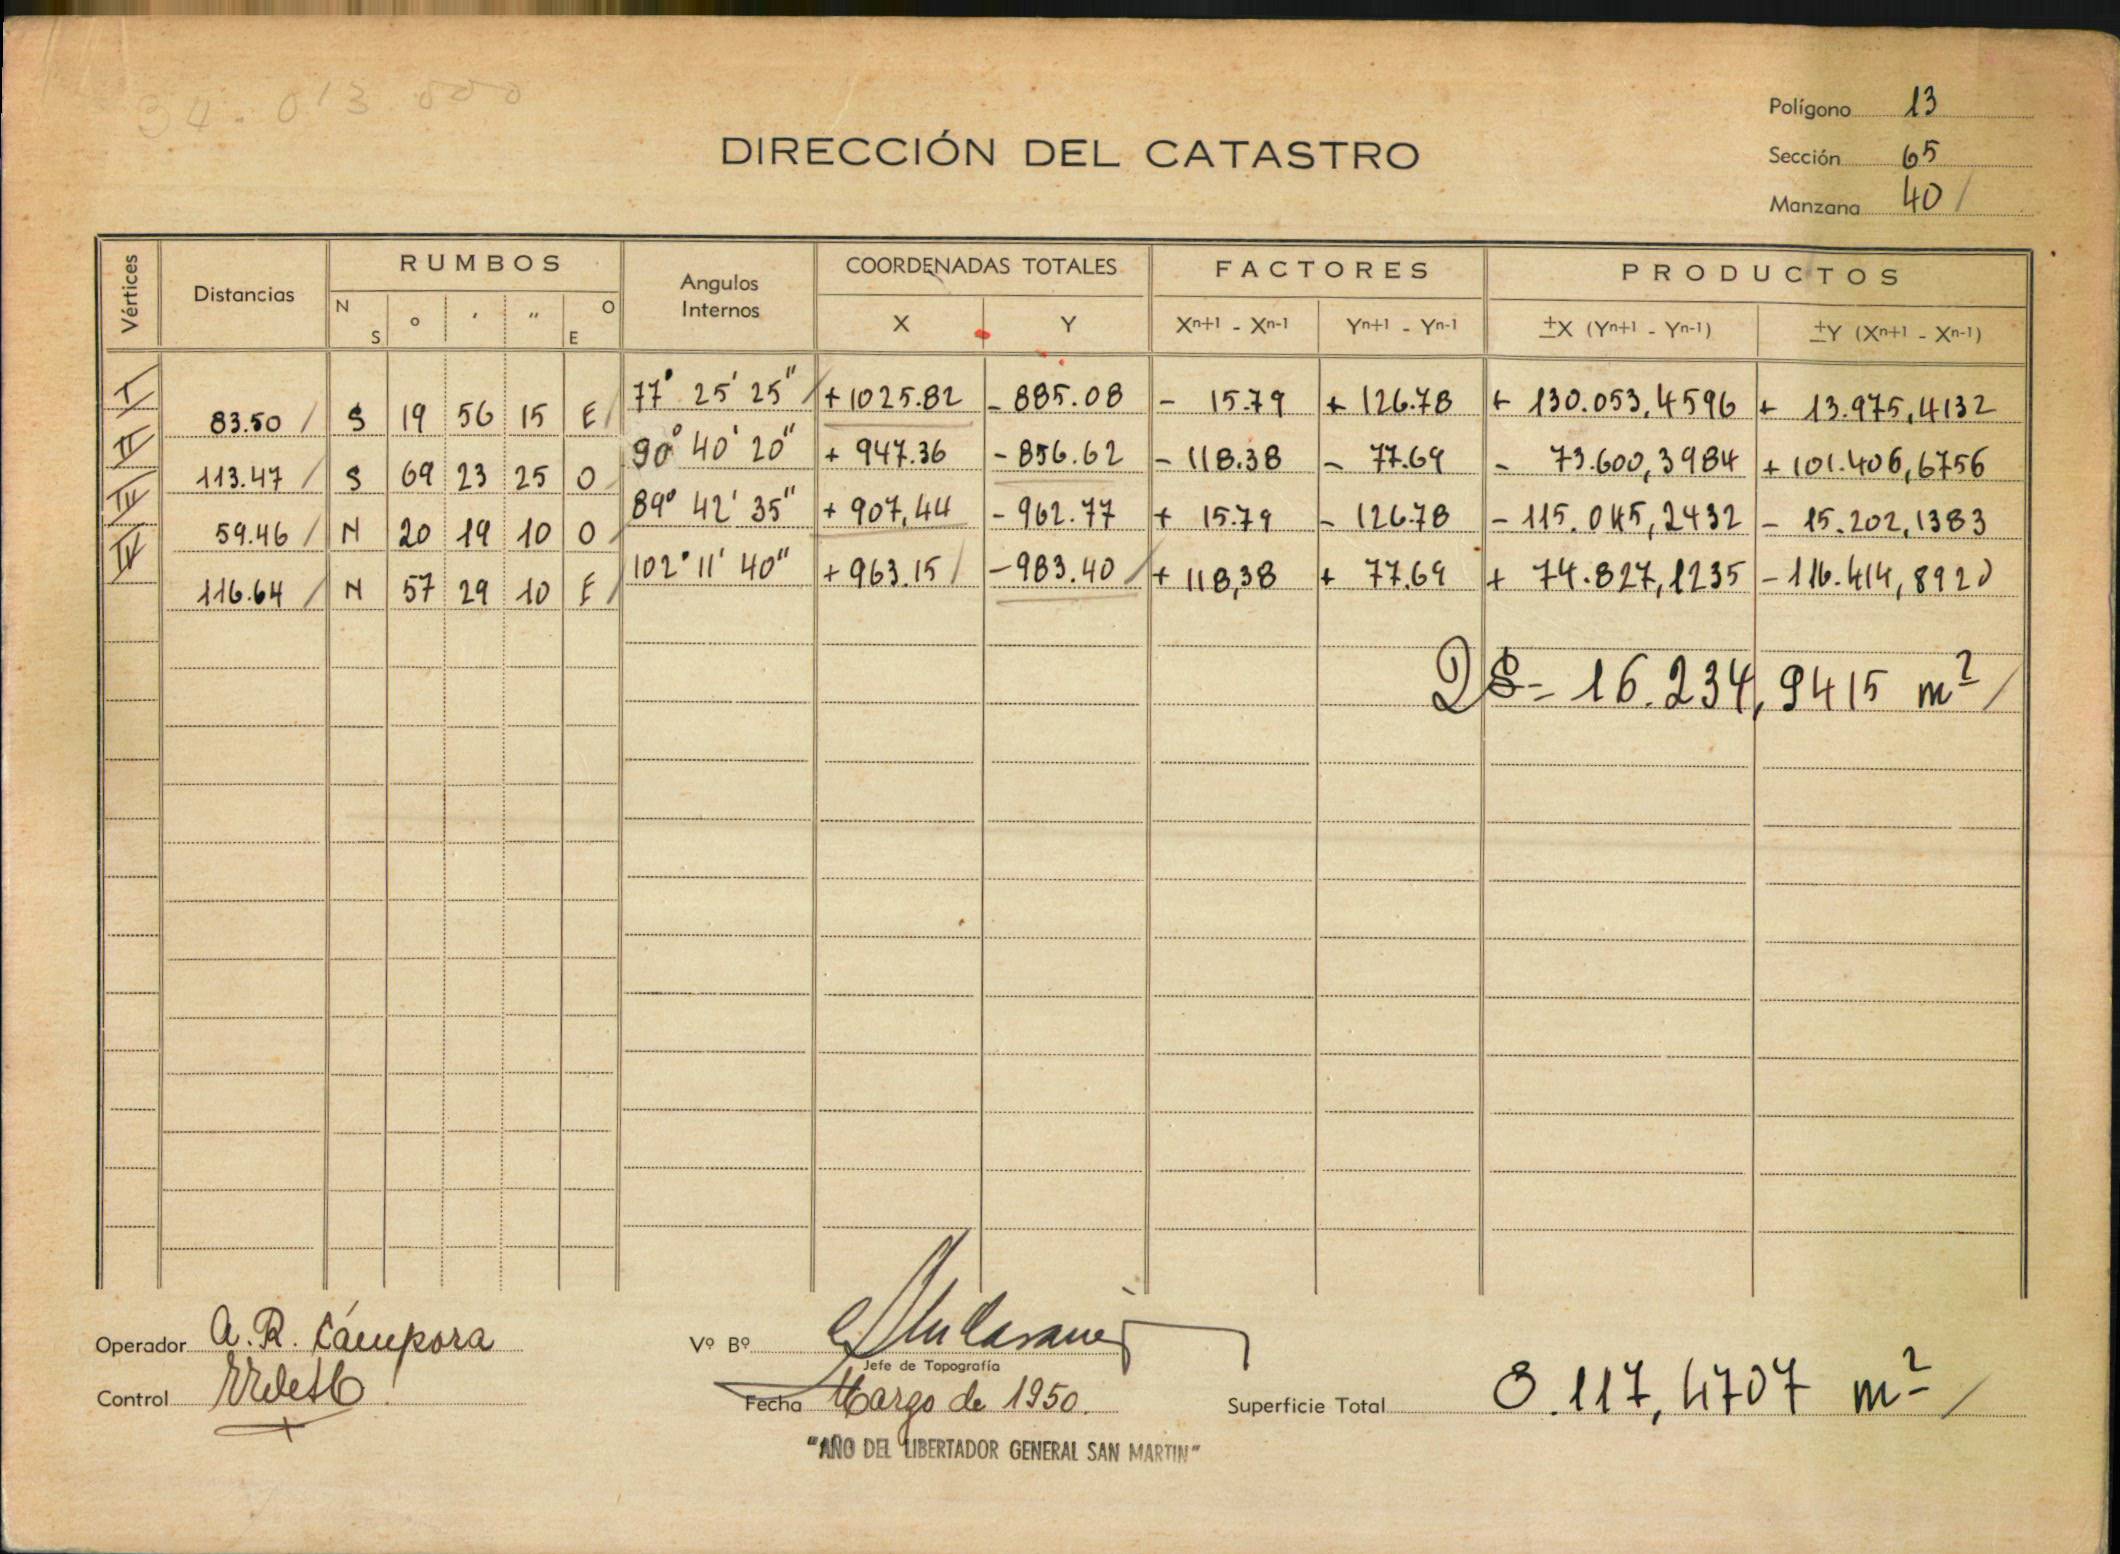 34.013.000
Polígono 13
DIRECCIÓN DEL CATASTRO
Sección 65
Manzana 40 /
Vértices Distancias RUMBOS Angulos Internos COORDENADAS TOTALES FACTORES PRODUCTOS
N S ° ' " O E X Y Xn+1 - Xn-1 Yn+1 - Yn-1 ±X (Yn+1 - Yn-1) ±Y (Xn+1 - Xn-1)
I 77° 25' 25" / + 1025.82 - 885.08 - 15.79 + 126.78 + 130.053,4596 + 13.975,4132
83.50 / S 19 56 15 E /
II 90° 40' 20" + 947.36 - 856.62 - 118.38 - 77.69 - 73.600,3984 + 101.406,6756
113.47 / S 69 23 25 O /
III 89° 42' 35" + 907,44 - 962.77 + 15.79 - 126.78 - 115.045,2432 - 15.202,1383
59.46 / N 20 19 10 O /
IV 102° 11' 40" + 963.15 / - 983.40 / + 118,38 + 77.69 + 74.827,1235 - 116.414,8920
116.64 / N 57 29 10 E /
2S = 16.234,9415 m² /
Operador A. R. Cámpora
Vº Bº
Jefe de Topografía
Control
Fecha Marzo de 1950.
Superficie Total 8.117,4707 m² /
"AÑO DEL LIBERTADOR GENERAL SAN MARTIN"